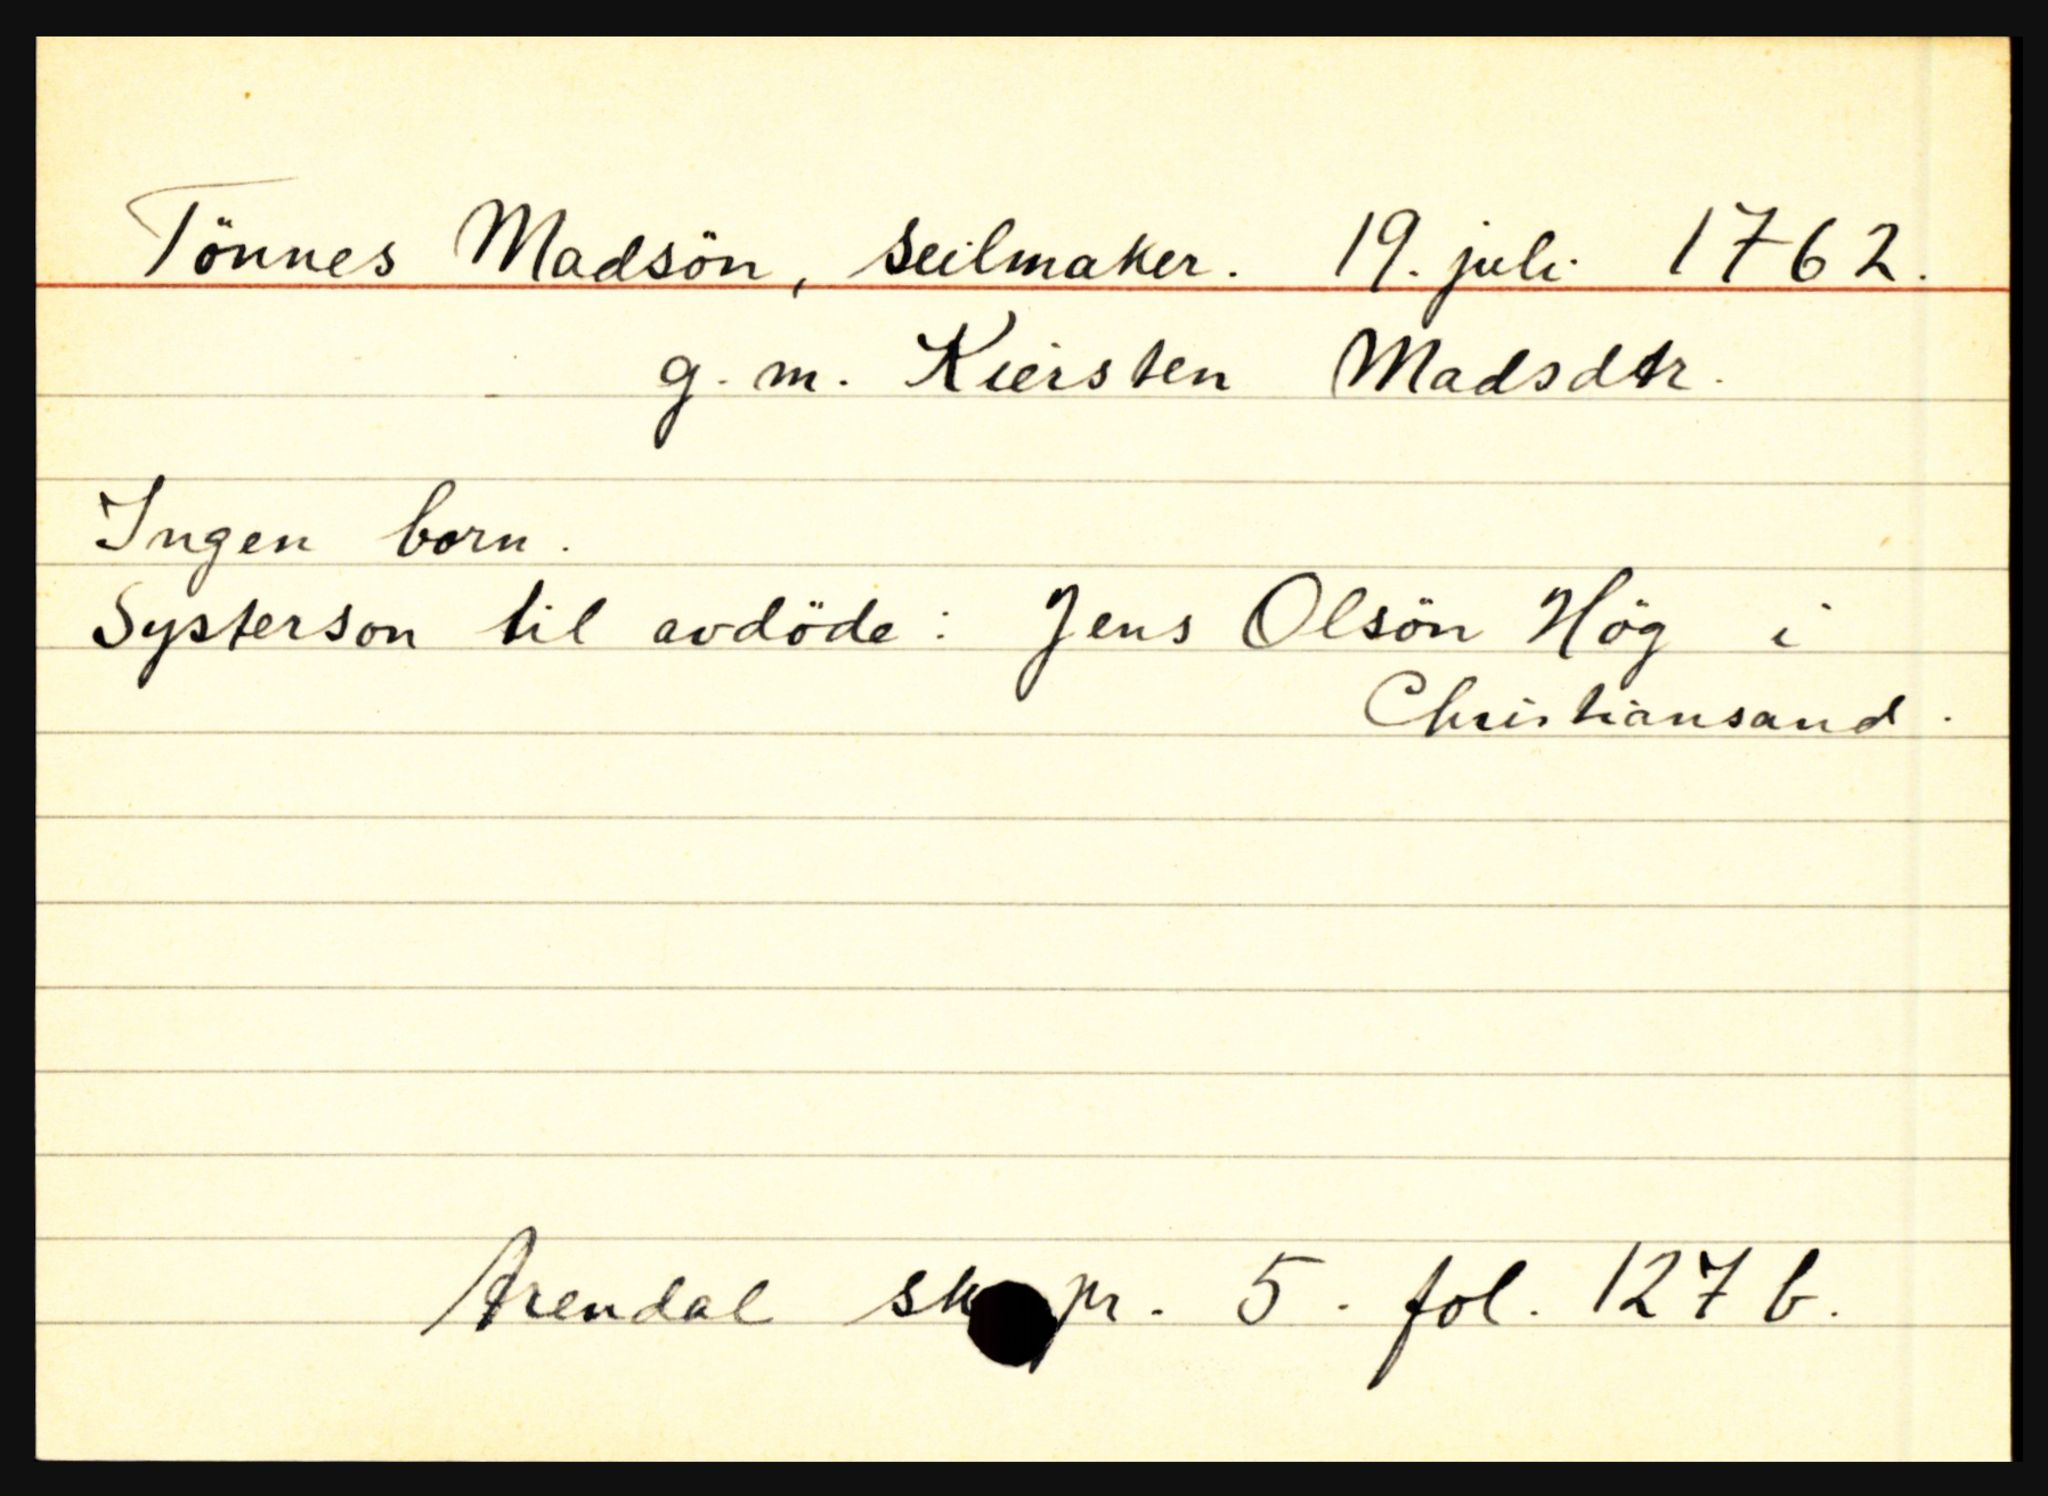 Tönnes Madsön, seilmaker. 19. juli 1762.
g. m. Kiersten Madsdtr.
Ingen born.
Systerson til avdöde: Jens Olsön Hög i
Christiansand.
Arendal sk pr. 5. fol. 127 b.